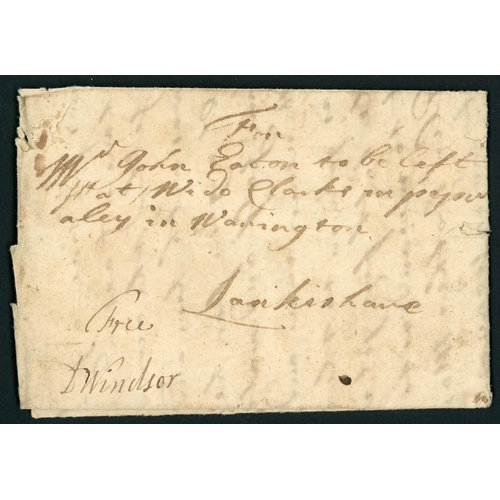 For
Mr John Eaton to be left
at Wido Clarks in peper
aley in Warington
Lankishare
Free
Windsor